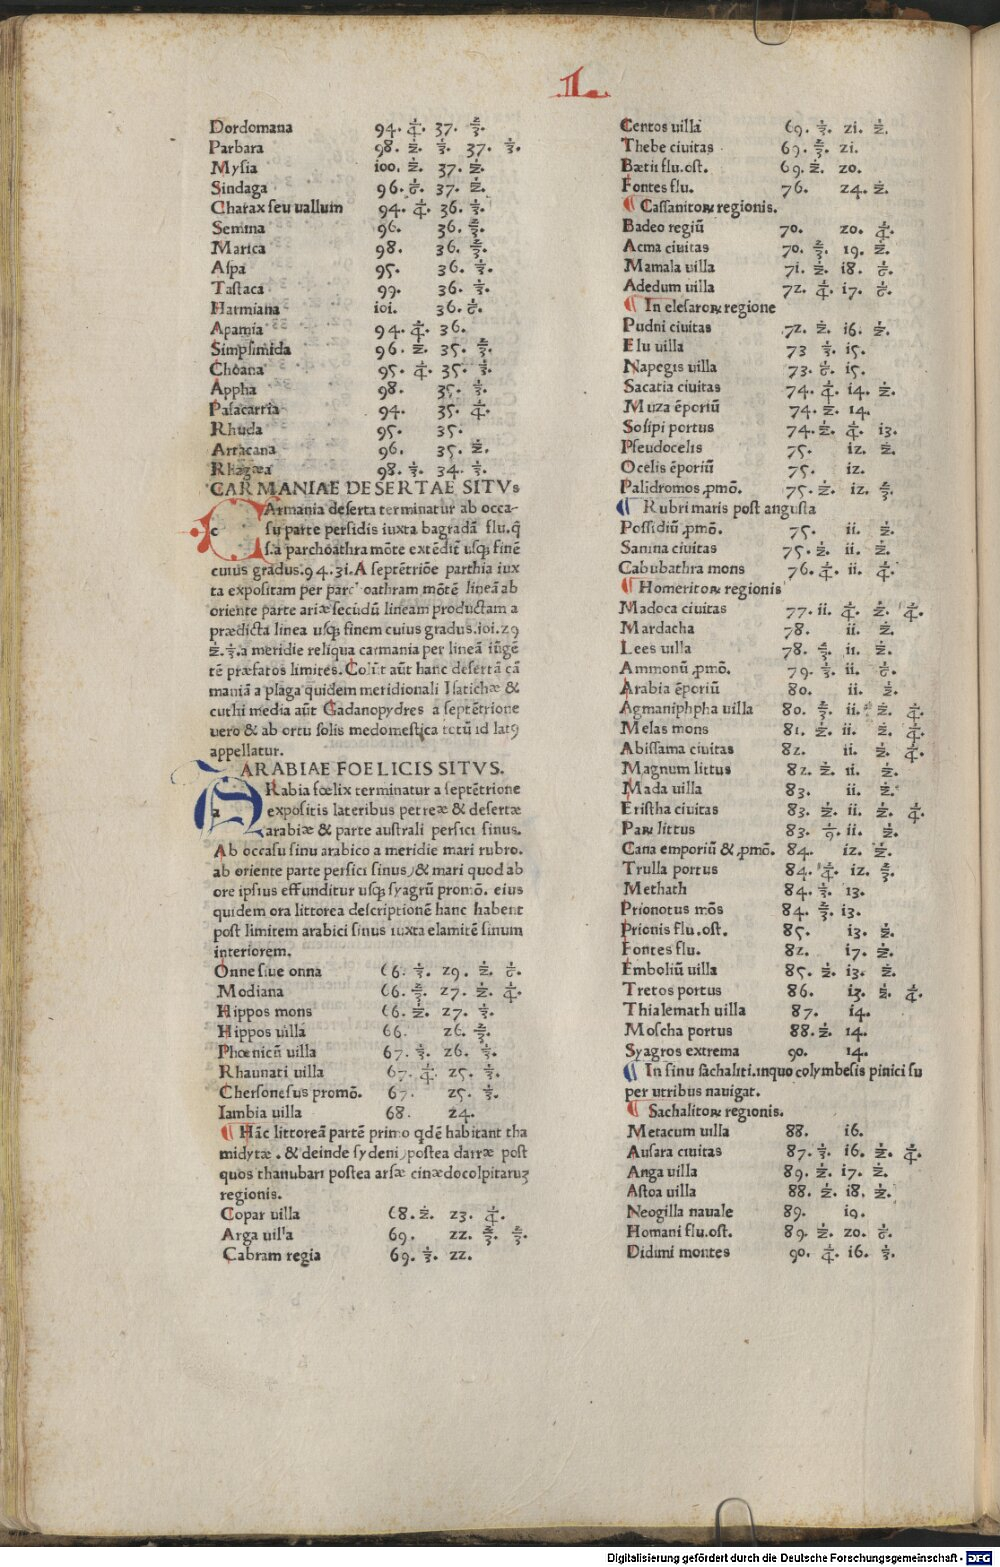 1.
Dordomana 94. 1/4. 37. 2/3.
Parbara 98. 1/2. 1/3. 37. 1/3.
Mysia ioo. 1/2. 37. 1/2.
Sindaga 96. 1/6. 37. 1/2.
Charax seu uallum 94. 1/4. 36. 1/3.
Semina 96. 36. 2/3.
Marica 98. 36. 2/3.
Aspa 95. 36. 1/3.
Tastaca 99. 36. 1/3.
Harmiana ioi. 36. 1/6.
Apamia 94. 1/4. 36.
Simpsimida 96. 1/2. 35. 2/3.
Choana 95. 1/4. 35. 1/3.
Appha 98. 35. 1/3.
Pasacarria 94. 35. 1/4.
Rhuda 95. 35.
Arracana 96. 35. 1/2.
Rhagæa 98. 1/3. 34. 1/3.
CARMANIAE DESERTAE SITVs
c Armania deserta terminatur ab occa-
su parte persidis iuxta bagradā flu. q̄
s.a parchoathra mōte extēdit̄ usqꝫ finē
cuius gradus.94.3i.A septētriōe parthia iux
ta expositam per parchoathram mōtē lineā ab
oriente parte ariæ secūdū lineam productam a
prædicta linea usqꝫ finem cuius gradus.ioi.29
1/2.1/3.a meridie reliqua carmania per lineā iūgē
tē præfatos limites. Colūt aūt hanc desertā cā
maniā a plaga quidem meridionali Isatichæ &
cuthi media aūt Gadanopydres a septētrione
uero & ab ortu solis medomestica totū id latꝰ
appellatur.
ARABIAE FOELICIS SITVS.
a Rabia fœlix terminatur a septētrione
expositis lateribus petreæ & desertæ
arabiæ & parte australi persici sinus.
Ab occasu sinu arabico a meridie mari rubro.
ab oriente parte persici sinus, & mari quod ab
ore ipsius effunditur usqꝫ syagrū promō. eius
quidem ora littorea descriptionē hanc habent
post limitem arabici sinus iuxta elamitē sinum
interiorem.
Onne siue onna 66. 1/3. 29. 1/2. 1/6.
Modiana 66. 2/3. 27. 1/2. 1/4.
Hippos mons 66. 1/2. 27. 1/3.
Hippos uilla 66. 26. 2/3.
Phœnicū uilla 67. 1/3. 26. 1/3.
Rhaunati uilla 67. 1/4. 25. 1/3.
Chersonesus promō. 67. 25. 1/3.
Iambia uilla 68. 24.
¶ Hāc littoreā partē primo qdē habitant tha
midytæ. & deinde sydeni, postea darræ post
quos thanubari postea arsæ cinædocolpitaruꝫ
regionis.
Copar uilla 68. 1/2. 23. 1/4.
Arga uilla 69. 22. 2/3. 2/3.
Cabram regia 69. 1/3. 22.
Centos uilla 69. 1/3. 2i. 1/2.
Thebe ciuitas 69. 2/3. 2i.
Bætii flu.ost. 69. 1/2. 20.
Fontes flu. 76. 24. 1/2.
¶ Cassanitoꝝ regionis.
Badeo regiū 70. 20. 1/4.
Acma ciuitas 70. 2/3. 19. 1/2.
Mamala uilla 7i. 1/2. i8. 1/6.
Adedum uilla 72. 1/4. i7. 1/6.
¶ In elesaroꝝ regione
Pudni ciuitas 72. 1/2. i6. 1/2.
Elu uilla 73 1/3. i5.
Napegis uilla 73. 1/6. i5.
Sacatia ciuitas 74. 1/4. i4. 1/2.
Muza ēporiū 74. 1/2. 14.
Sosipi portus 74. 1/2. 1/4. i3.
Pseudocelis 75. i2. 1/2.
Ocelis ēporiū 75. i2.
Palidromos ꝓmō. 75. 1/2. i2. 2/3.
¶ Rubri maris post angusta
Possidiū ꝓmō. 75. ii. 1/2.
Sanina ciuitas 75. 1/2. ii. 1/2.
Cabubathra mons 76. 1/4. ii. 1/4.
¶ Homeritoꝝ regionis
Madoca ciuitas 77. ii. 1/4. 1/2. 1/4.
Mardacha 78. ii. 1/2.
Lees uilla 78. 2/3. ii. 1/2.
Ammonū ꝓmō. 79. 1/3. ii. 1/6.
Arabia ēporiū 80. ii. 1/2.
Agmaniphpha uilla 80. 2/3. ii. 1/2. 1/4.
Melas mons 8i. 1/2. ii. 1/2. 1/4.
Abissama ciuitas 82. ii. 1/2. 1/4.
Magnum littus 82. 1/2. ii. 1/2.
Mada uilla 83. ii. 1/2.
Eristha ciuitas 83. 1/2. ii. 1/2. 1/4.
Paꝝ littus 83. 1/9. ii. 1/2.
Cana emporiū & ꝓmō. 84. i2. 1/2.
Trulla portus 84. 1/4. i2. 2/3.
Methath 84. 1/3. 13.
Prionotus mōs 84. 2/3. i3.
Prionis flu.ost. 85. i3. 1/2.
Fontes flu. 82. i7. 1/2.
Emboliū uilla 85. 1/2. i3. 1/2.
Tretos portus 86. i3. 1/2. 1/4.
Thialemath uilla 87. i4.
Moscha portus 88. 1/2. 14.
Syagros extrema 90. 14.
¶ In sinu sachaliti. inquo colymbesis pinici su
per utribus nauigat.
¶ Sachalitoꝝ regionis.
Metacum uilla 88. i6.
Ausara ciuitas 87. 1/3. i6. 1/2. 1/4.
Anga uilla 89. 1/2. i7. 1/2.
Astoa uilla 88. 1/2. i8. 1/2.
Neogilla nauale 89. i9.
Homani flu.ost. 89. 1/2. 20. 1/6.
Didimi montes 90. 1/4. i6. 1/3.
Digitalisierung gefördert durch die Deutsche Forschungsgemeinschaft - DFG